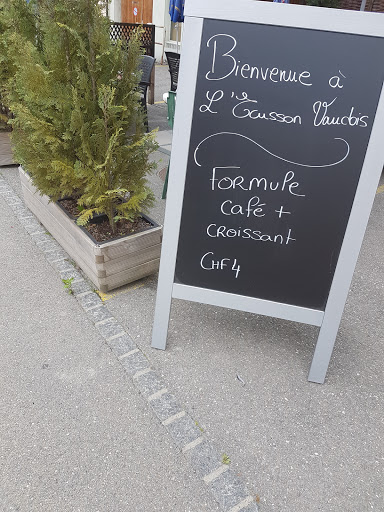 Bienvenue à
L'Écusson Vaudois
Formule
café +
croissant
CHF 4